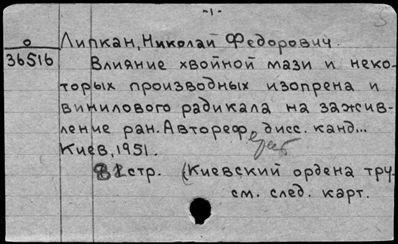 -1-
0
36516
Липкан, Николай Федорович.
Влияние хвойной мази и неко-
торых производных изопрена и
винилового радикала на зажив-
ление ран. Автореф. дисс. канд...
Киев, 1951.
стр. (Киевский ордена тру-
см. след. карт.